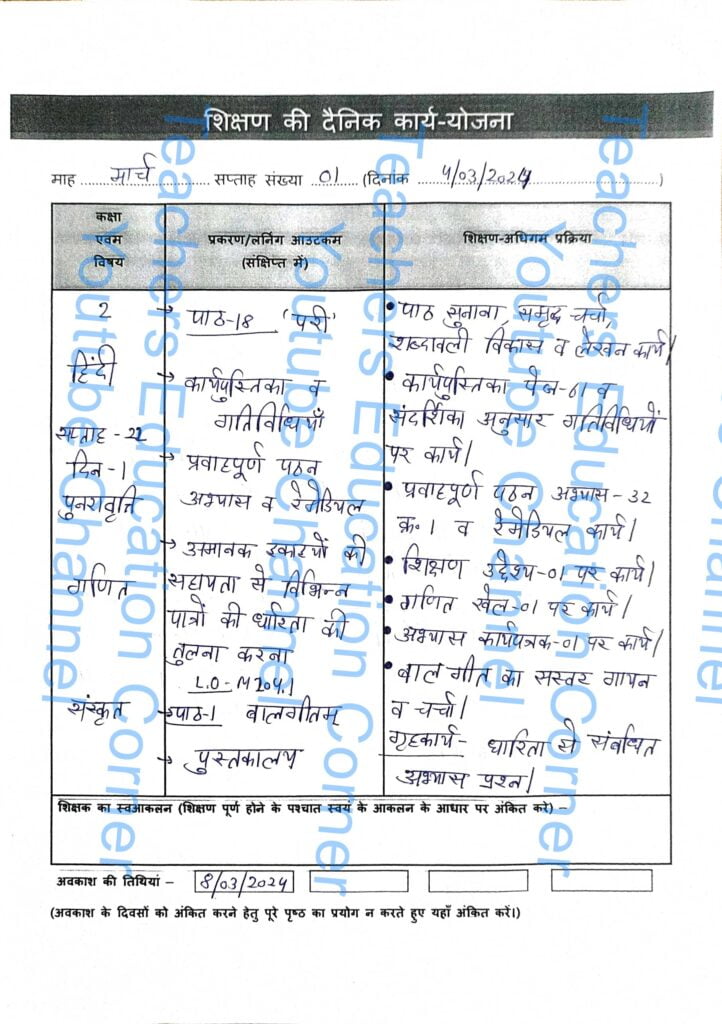 शिक्षण की दैनिक कार्य-योजना
माह मार्च सप्ताह संख्या 01 (दिनांक 4/03/2024)
कक्षा
एवम
विषय
प्रकरण/लर्निंग आउटकम
(संक्षिप्त में)
शिक्षण-अधिगम प्रक्रिया
2
हिंदी
सप्ताह - 22
दिन-1
पुनरावृत्ति
→ पाठ-18 'परी'
→ कार्यपुस्तिका व
गतिविधियाँ
→ प्रवाहपूर्ण पठन
अभ्यास व रेमेडियल
• पाठ सुनाना, समूह चर्चा,
शब्दावली विकास व लेखन कार्य।
• कार्यपुस्तिका पेज-61 व
संदर्शिका अनुसार गतिविधियों
पर कार्य।
• प्रवाहपूर्ण पठन अभ्यास-32
क्र.1 व रेमेडियल कार्य।
गणित
→ अमानक इकाइयों की
सहायता से विभिन्न
पात्रों की धारिता की
तुलना करना
L.O-M204.1
• शिक्षण उद्देश्य-01 पर कार्य।
• गणित खेल-01 पर कार्य।
• अभ्यास कार्यपत्रक-01 पर कार्य।
संस्कृत
→ पाठ-1 बालगीतम्
→ पुस्तकालय
• बाल गीत का सस्वर गायन
व चर्चा।
गृहकार्य- धारिता से संबंधित
अभ्यास प्रश्न।
शिक्षक का स्वआकलन (शिक्षण पूर्ण होने के पश्चात स्वयं के आकलन के आधार पर अंकित करे) –
अवकाश की तिथियां – 8/03/2024
(अवकाश के दिवसों को अंकित करने हेतु पूरे पृष्ठ का प्रयोग न करते हुए यहाँ अंकित करें।)
Teachers Education Corner
Youtube Channel
Teachers Education Corner
Youtube Channel
Teachers Education Corner
Youtube Channel